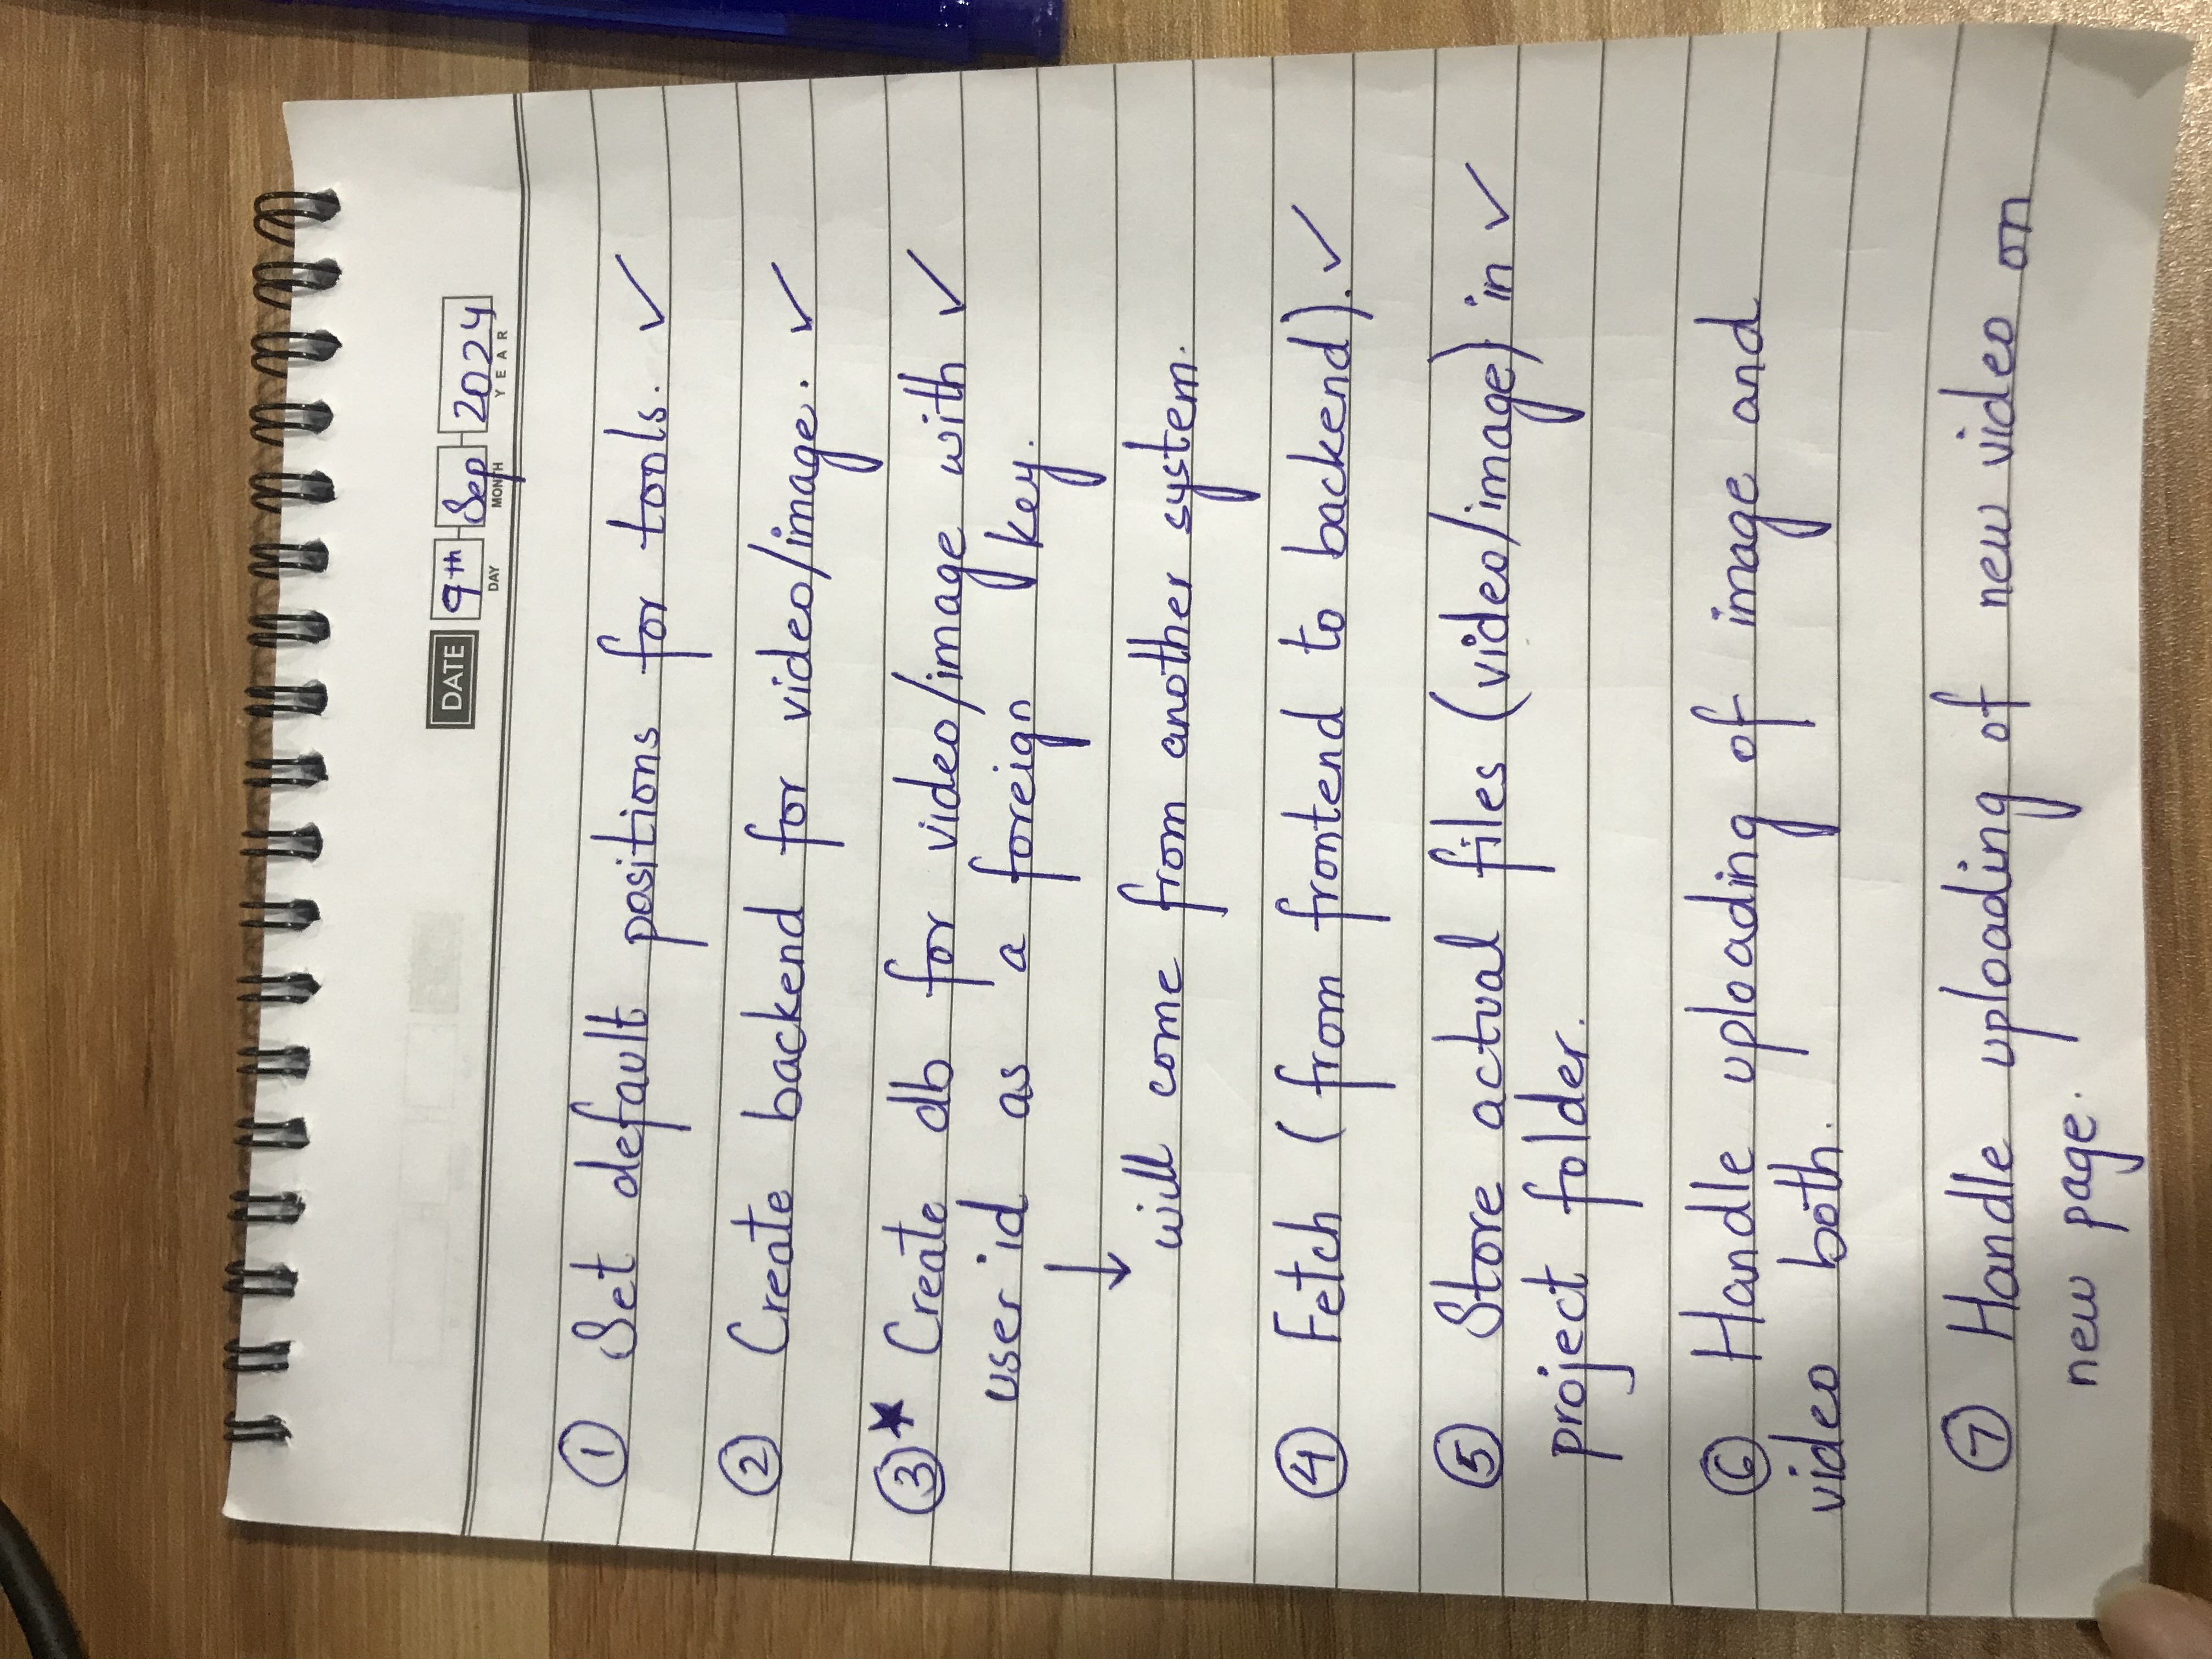 DATE 9th Sep 2024
DAY MONTH YEAR
① Set default positions for tools. ✓
② Create backend for video/image. ✓
③★ Create db for video/image with ✓
user id as a foreign key.
↓
will come from another system.
④ Fetch (from frontend to backend). ✓
⑤ Store actual files (video/image) in ✓
project folder.
⑥ Handle uploading of image and
video both.
⑦ Handle uploading of new video on
new page.